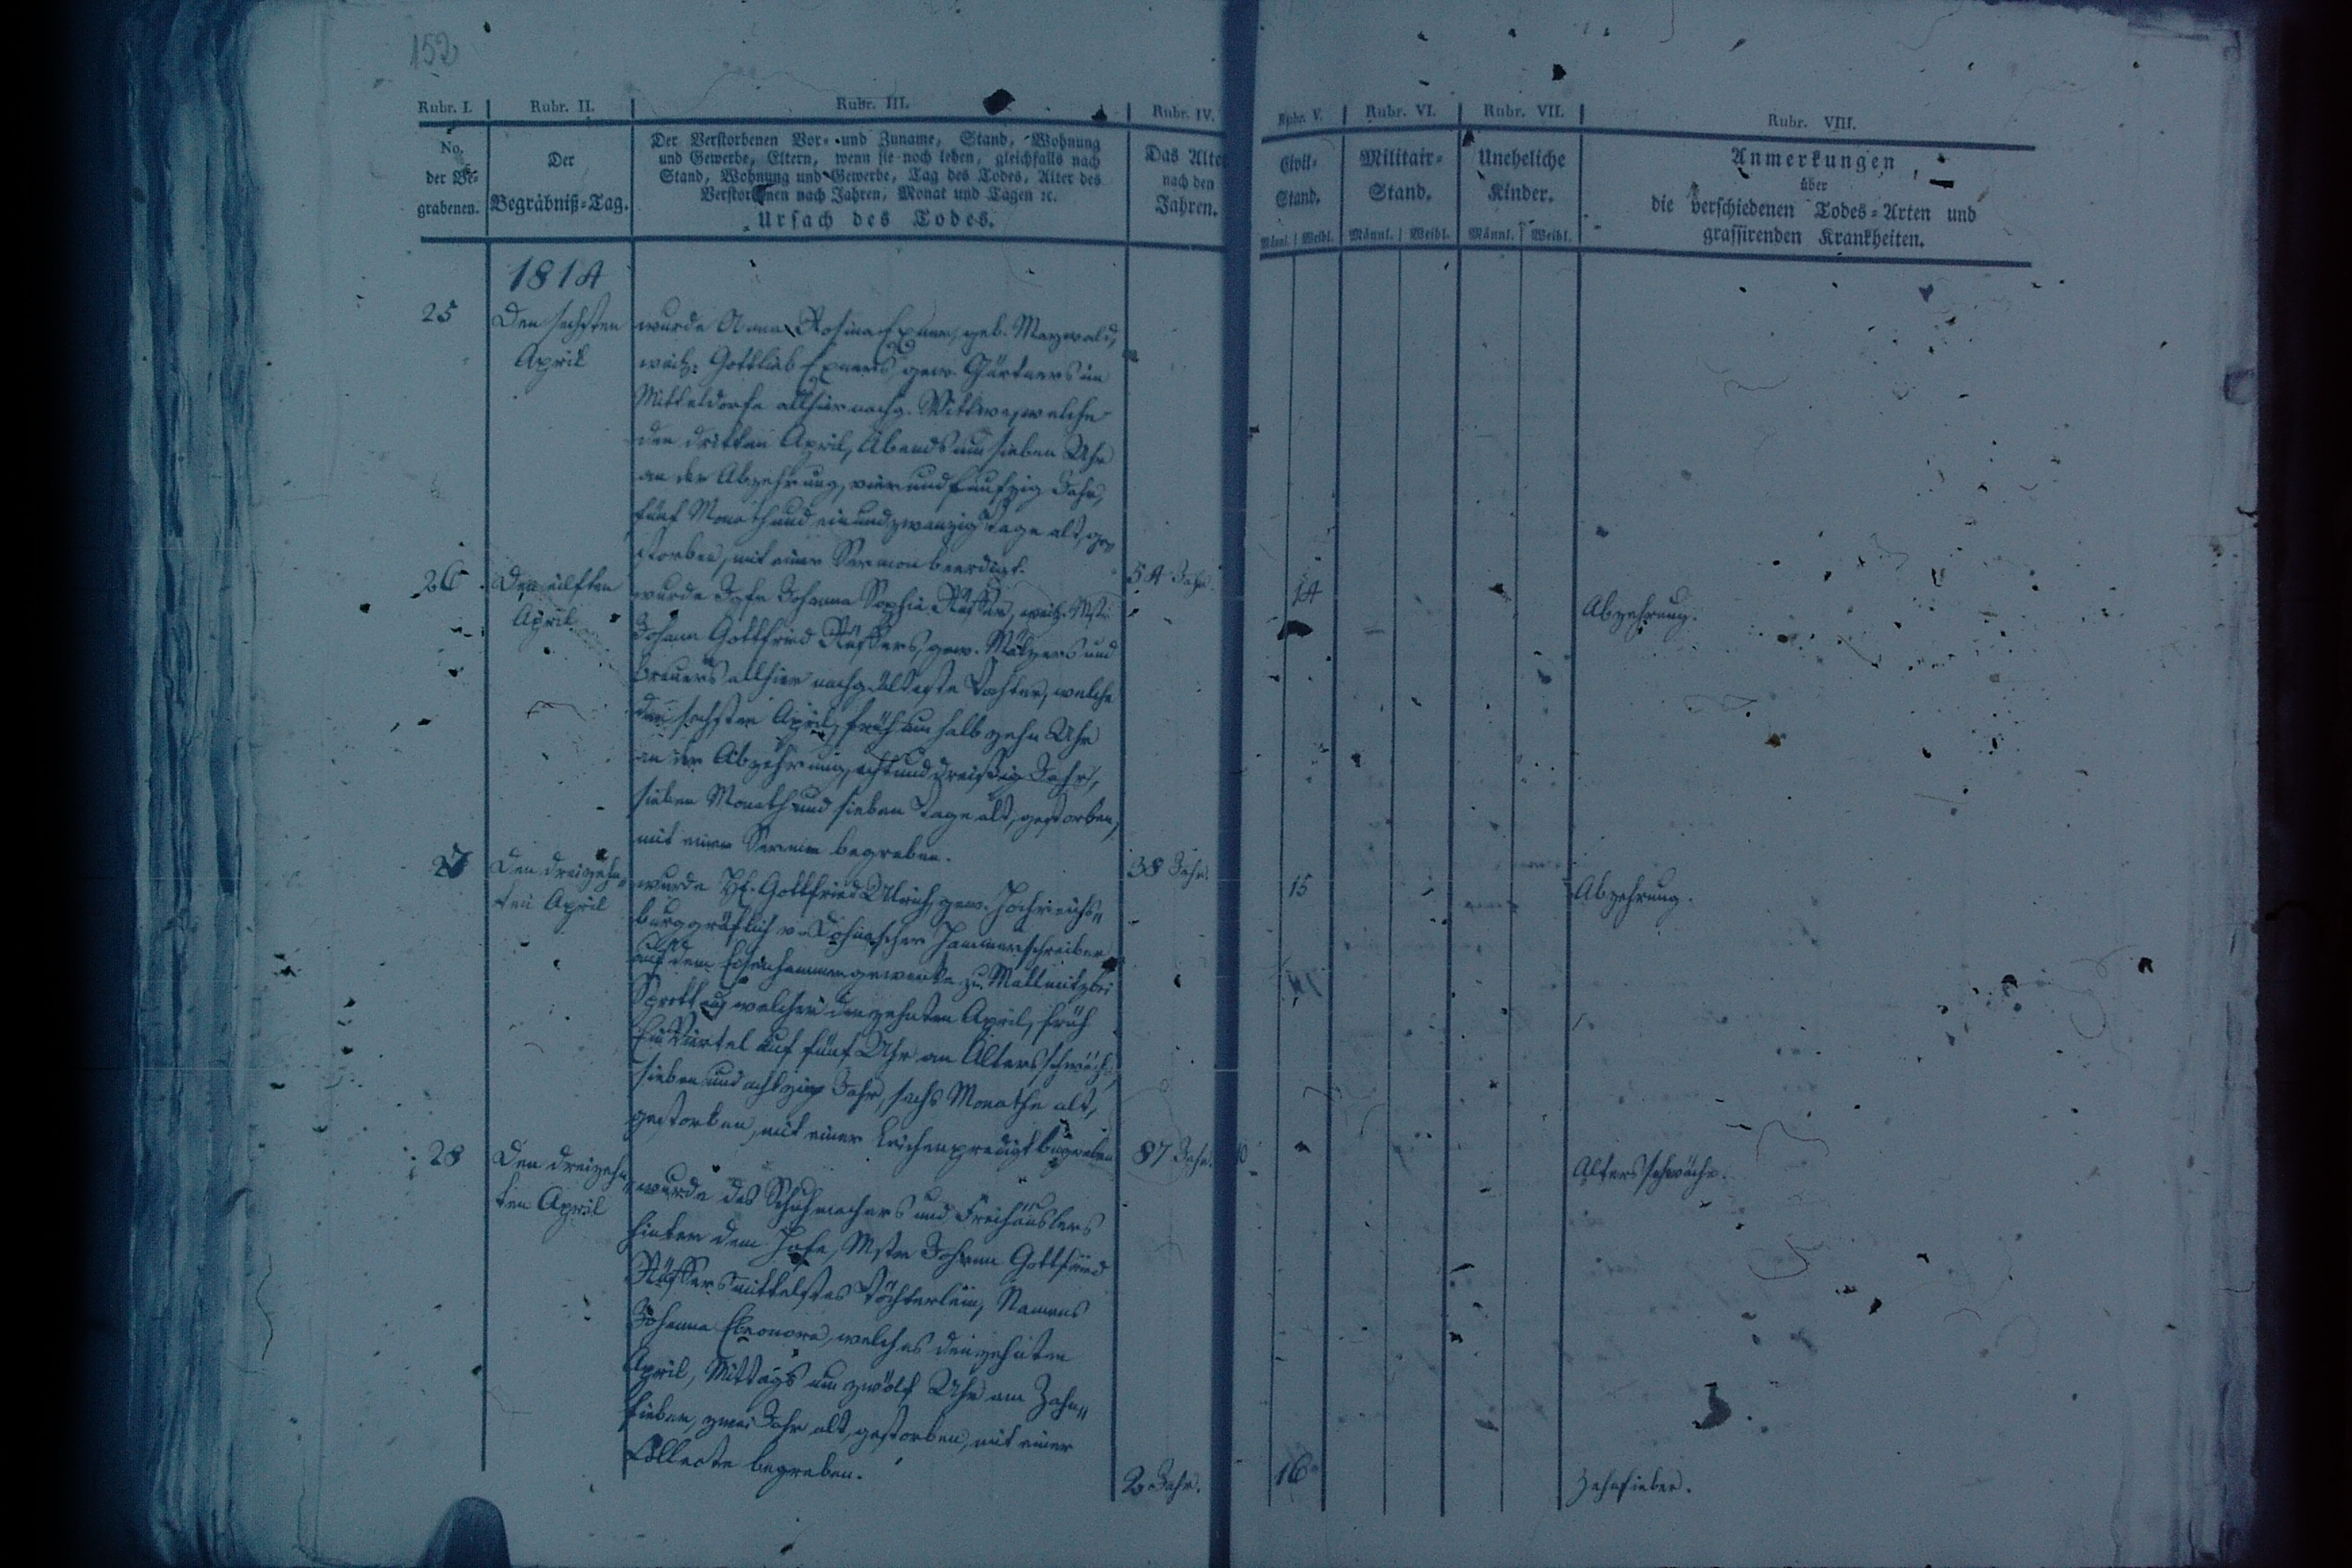 152
Rubr. I. Rubr. II. Rubr. III. Rubr. IV. Rubr. V. Rubr. VI. Rubr. VII. Rubr. VIII.
No. der Be-grabenen.
Der Begräbniß-Tag.
Der Verstorbenen Vor- und Zuname, Stand, Wohnung
und Gewerbe, Eltern, wenn sie noch leben, gleichfalls nach
Stand, Wohnung und Gewerbe, Tag des Todes, Alter des
Verstorbenen nach Jahren, Monat und Tagen ꝛc.
Ursach des Todes.
Das Alter
nach den
Jahren.
Civil-
Stand.
Männl. Weibl.
Militair-
Stand.
Männl. Weibl.
Uneheliche
Kinder.
Männl. Weibl.
Anmerkungen
über
die verschiedenen Todes-Arten und
grassirenden Krankheiten.
1814
25
Den sechsten
April
wurde Anna Rosina Exner, geb. Maywald,
weil. Gottlieb Exners, gew. Gärtners im
Mitteldorfe allhier nachg. Wittwe, welche
den dritten April, Abends um sieben Uhr
an der Abzehrung, vier und funfzig Jahr,
fünf Monath und ein und zwanzig Tage alt, ge-
storben, mit einer Sermon beerdigt.
54 Jahr.
14
Abzehrung.
26
Den eilften
April
wurde Jgfr. Johanna Sophia, weil. Mstr.
Johann Gottfried, gew. Mälzers und
Brauers allhier nachg. älteste Tochter, welche
den sechsten April, früh um halb zehn Uhr
an der Abzehrung, acht und dreißig Jahr,
sieben Monath und sieben Tage alt, gestorben,
mit einer Sermon begraben.
38 Jahr.
15
Abzehrung.
27
Den dreizehn-
ten April
wurde Hr. Gottfried Ulrich, gew. Hochreichs-
burggräflich v. Dohnascher Hammerschreiber
auf dem Eisenhammergewerke zu Mallmitz bei
Sprottau, welcher den zehnten April, früh
Ein Viertel auf fünf Uhr an Altersschwäche,
sieben und achtzig Jahr, sechs Monathe alt,
gestorben, mit einer Leichenpredigt begraben
87 Jahr.
10
Altersschwäche.
28
Den dreizehn-
ten April
wurde des Schuhmachers und Freihäuslers
hinter dem Hofe, Mstr. Johann Gottfried
mittelstes Töchterlein, Namens
Johanna Eleonora, welches den zehnten
April, Mittags um zwölf Uhr am Zahn-
fieber, zwei Jahr alt, gestorben, mit einer
Collecte begraben.
2 Jahr.
16
Zahnfieber.